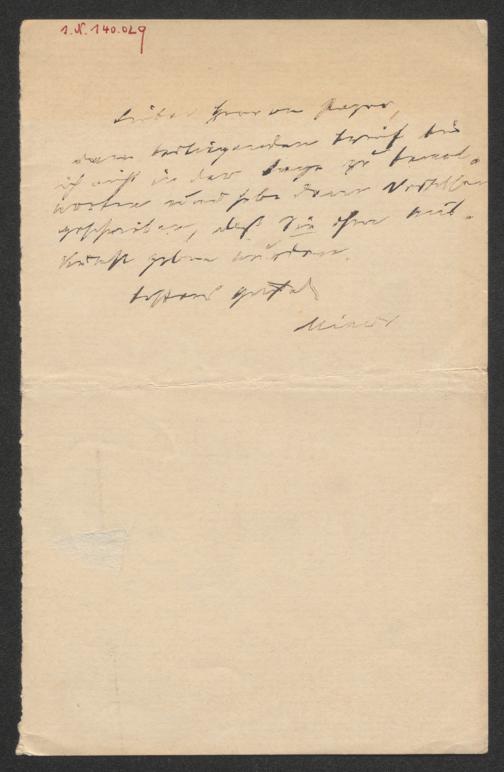 I.N. 140.029
Lieber Herr von Payer,
dem beiliegenden Brief bin
ich nicht in der Lage zu beant-
worten und habe dem Verfasser
geschrieben, daß Sie ihm Aus-
kunft geben würden.
Bestens grüßend
Minor